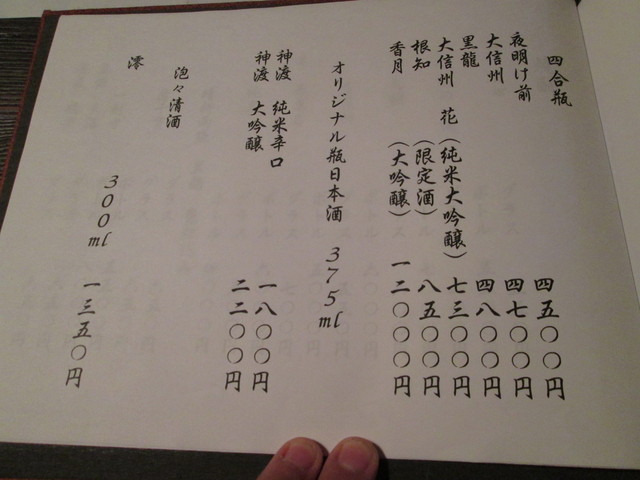 四合瓶
夜明け前 四五〇〇円
大信州 四七〇〇円
黒龍 四八〇〇円
大信州 花 (純米大吟醸) 七三〇〇円
根知 (限定酒) 八五〇〇円
香月 (大吟醸) 一二〇〇〇円
オリジナル瓶日本酒 375ml
神渡 純米辛口 一八〇〇円
神渡 大吟醸 二二〇〇円
泡々清酒
澪 300ml 一三五〇円